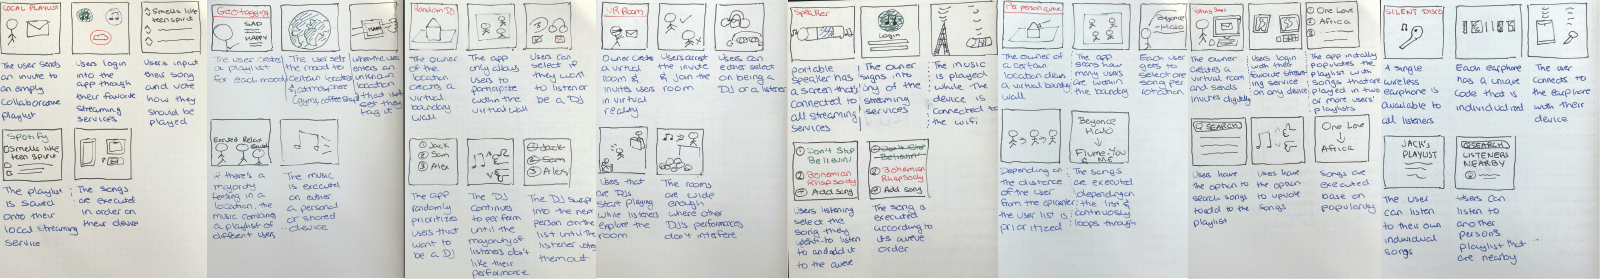 LOCAL PLAYLIST
Smells like
teen spirit
The user sends
an invite to
an empty
collaborative
playlist
Users login
into the
app through
their favorite
streaming
services
Users input
their song
and vote
how they
should be
played
Spotify
Smells like
teen spirit
The playlist
is saved
onto their
local streaming
service
The songs
are executed
in order on
their device
Geotagging
SAD
HAPPY
The user sends
a playlist
for each mood
The user sets
the mood to
certain locations
& atmosphere
(gyms, coffee shops)
when the user
enters an
unknown
location
that isn't
set they
tag it
Excited Relax
If there's a
majority
feeling in a
location, the
music combines
a playlist of
different users
The music
is executed
on either
a personal
or shared
device
Random DJ
The owner
of the
location
creates a
virtual
boundary
wall
The app
only allows
users to
participate
within the
virtual wall
Users can
select if
they want
to listen or
be a DJ
① Jack
② Sam
③ Alex
The app
randomly
prioritizes
users that
want to
be a DJ
The DJ
continues
to perform
until the
majority of
listeners don't
like their
performance
① Jack
② Sam
③ Alex
The DJ swaps
into the next
person on the
list until the
listener votes
them out
VR Room
Owner creates
a virtual
room &
invites users
in virtual
reality
Users accept
the invite
& join the
room
Users can
either select
on being a
DJ or a listener
Users that
are DJs
start playing
while listeners
explore the
room
The rooms
are wide
enough
where other
DJ's performances
don't interfere
Speaker
Login
portable
speaker has
a screen that's
connected to
all streaming
services
The owner
signs into
any of the
streaming
services
The music
is played
while the
device is
connected to
the wifi
① Don't Stop
Believin'
② Bohemian
Rhapsody
③ Add song
Users listening
select the
song they
want to listen
to and add it
to the queue
① Don't Stop
Believin'
② Bohemian
Rhapsody
③ Add song
The song is
executed
according to
its queue
order
The owner of
a certain
location draws
a virtual boundary
wall
The app
sees how
many users
are within
the boundary
Beyonce
Halo
Each user
gets to
select one
song per
rotation
Depending on
the distance
of the user
from the epicenter
the user list is
prioritized
Beyonce
Halo
Flume-You
& Me
The songs
are executed
depending on
the list &
continuously
loops through
The owner
creates a
virtual room
and sends
invites digitally
Users login
with their
favorite stream-
ing service
on any device
① One Love
② Africa
The app initially
populates the
playlist with
songs that are
played in two
or more users'
playlists
SEARCH
Users have
the option to
search songs
to add to the
playlist
Users have
the option
to upvote
songs
One Love
Africa
Songs are
executed
base on
popularity
SILENT DISCO
A single
wireless
earphone is
available to
all listeners
Each earphone
has a unique
code that is
individualized
The user
connects to
the earphone
with their
device
JACK'S
PLAYLIST
The user
can listen
to their own
individual
songs
SEARCH
LISTENERS
NEARBY
Users can
listen to
another
person's
playlist that
are nearby